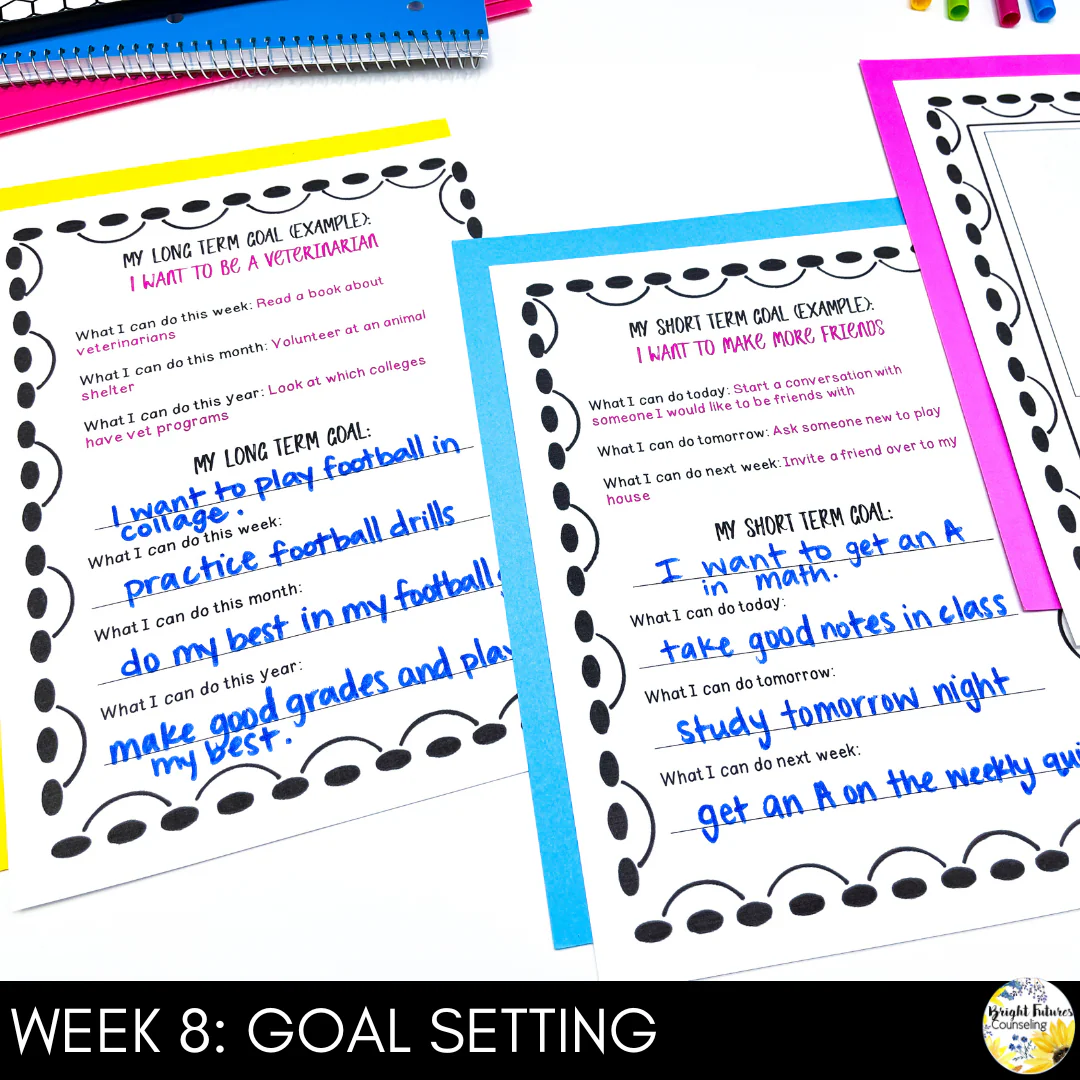 MY LONG TERM GOAL (EXAMPLE):
I WANT TO BE A VETERINARIAN
What I can do this week: Read a book about
veterinarians
What I can do this month: Volunteer at an animal
shelter
What I can do this year: Look at which colleges
have vet programs
MY LONG TERM GOAL:
I want to play football in
collage.
What I can do this week:
practice football drills
What I can do this month:
do my best in my football
What I can do this year:
make good grades and play
my best.
MY SHORT TERM GOAL (EXAMPLE):
I WANT TO MAKE MORE FRIENDS
What I can do today: Start a conversation with
someone I would like to be friends with
What I can do tomorrow: Ask someone new to play
What I can do next week: Invite a friend over to my
house
MY SHORT TERM GOAL:
I want to get an A
in math.
What I can do today:
take good notes in class
What I can do tomorrow:
study tomorrow night
What I can do next week:
get an A on the weekly qui
WEEK 8: GOAL SETTING
Bright Futures
Counseling